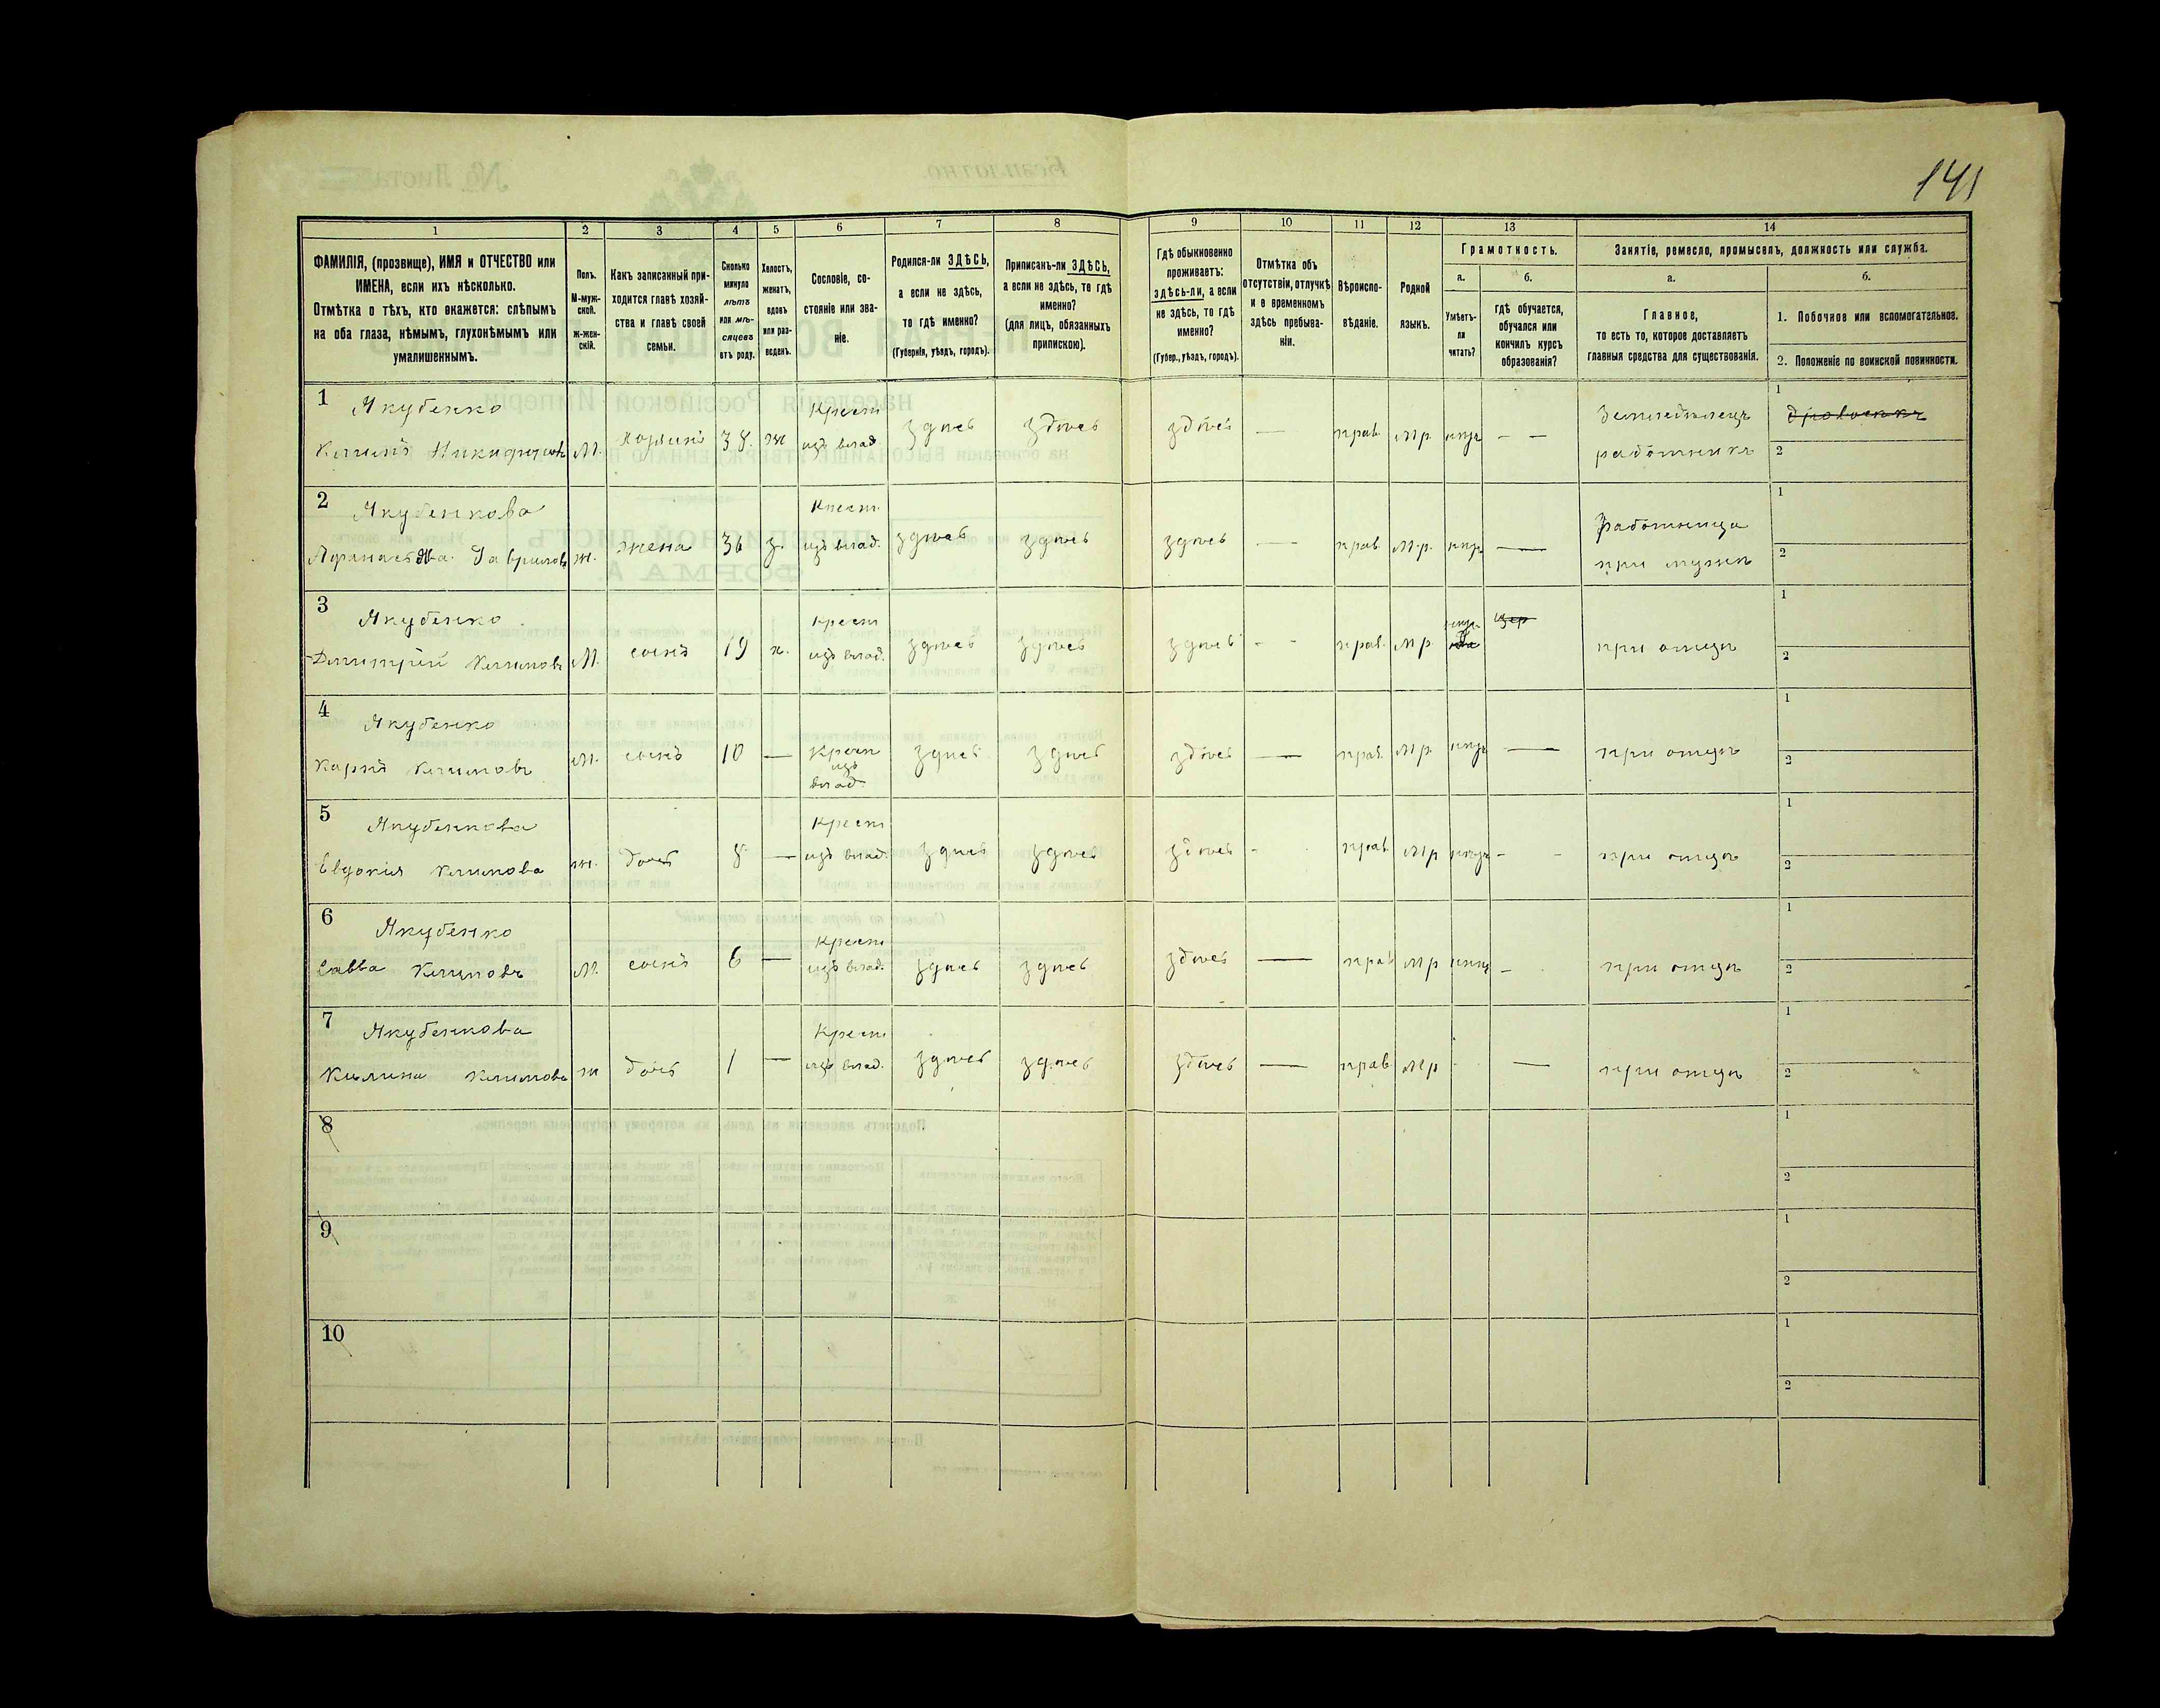 141
1 2 3 4 5 6 7 8 9 10 11 12 13 14
ФАМИЛІЯ, (прозвище), ИМЯ и ОТЧЕСТВО или
ИМЕНА, если ихъ нѣсколько.
Отмѣтка о тѣхъ, кто окажется: слѣпымъ
на оба глаза, нѣмымъ, глухонѣмымъ или
умалишеннымъ.
Полъ.
М-муж-
ской.
Ж-жен-
скій.
Какъ записанный при-
ходится главѣ хозяй-
ства и главѣ своей
семьи.
Сколько
минуло
лѣтъ
или мѣ-
сяцевъ
отъ роду.
Холостъ,
женатъ,
вдовъ
или раз-
веденъ.
Сословіе, со-
стояніе или зва-
ніе.
Родился-ли ЗДѢСЬ,
а если не здѣсь,
то гдѣ именно?
(Губернія, уѣздъ, городъ).
Приписанъ-ли ЗДѢСЬ,
а если не здѣсь, то гдѣ
именно?
(для лицъ, обязанныхъ
припискою).
Гдѣ обыкновенно
проживаетъ:
здѣсь-ли, а если
не здѣсь, то гдѣ
именно?
(Губер., уѣздъ, городъ).
Отмѣтка объ
отсутствіи, отлучкѣ
и о временномъ
здѣсь пребыва-
ніи.
Вѣроиспо-
вѣданіе.
Родной
языкъ.
Грамотность.
а.
Умѣетъ-
ли
читать?
б.
гдѣ обучается,
обучался или
кончилъ курсъ
образованія?
Занятіе, ремесло, промыселъ, должность или служба.
а.
Главное,
то есть то, которое доставляетъ
главныя средства для существованія.
б.
1. Побочное или вспомогательное.
2. Положеніе по воинской повинности.
1 Якубенко Крест здѣсь здѣсь здѣсь Земледѣлецъ 1
Климъ Никифоровъ М. 38. ж изъ влад. — прав. мр. нѣтъ — — работникъ 2
2 Якубенкова Крест. Работница 1
Гаврилов ж. жена 36 з. изъ влад. здѣсь здѣсь здѣсь — прав. М.р. нѣтъ — при мужѣ 2
3 Якубенко Крест нѣтъ 1
Дмитрій Климовъ М. сынъ 19 х. изъ влад. здѣсь здѣсь здѣсь - - прав. мр. при отцѣ 2
4 Якубенко 1
Карпъ Климовъ М. сынъ 10 — Крест здѣсь здѣсь здѣсь — прав. мр. нѣтъ — при отцѣ 2
изъ
влад.
5 Якубенкова Крест 1
Евдокія Климова ж. дочь 8 — изъ влад. здѣсь здѣсь здѣсь - прав. мр нѣтъ - - при отцѣ 2
6 Якубенко Крест 1
Савва Климовъ М. сынъ 6 — изъ влад. здѣсь здѣсь здѣсь — прав мр нѣтъ - при отцѣ 2
7 Якубенкова Крест 1
Климова ж дочь 1 — изъ влад. здѣсь здѣсь здѣсь — прав. мр — при отцѣ 2
8 1
2
9 1
2
10 1
2